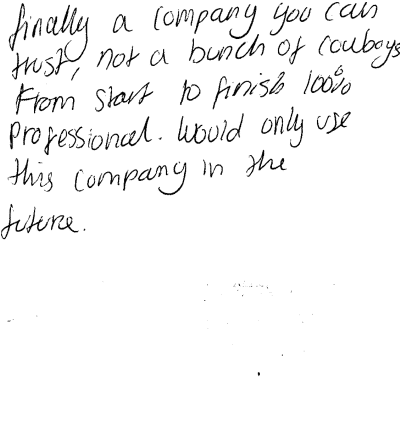 finally a company you can
trust, not a bunch of cowboys
From start to finish 100%
Professional. Would only use
this company in the
future.